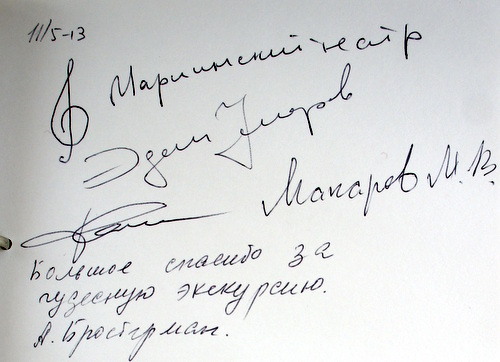 11/5-13
Мариинский театр
Эдем Умеров
Макаров М.В.
Большое спасибо за
чудесную экскурсию.
А. Бростерман.